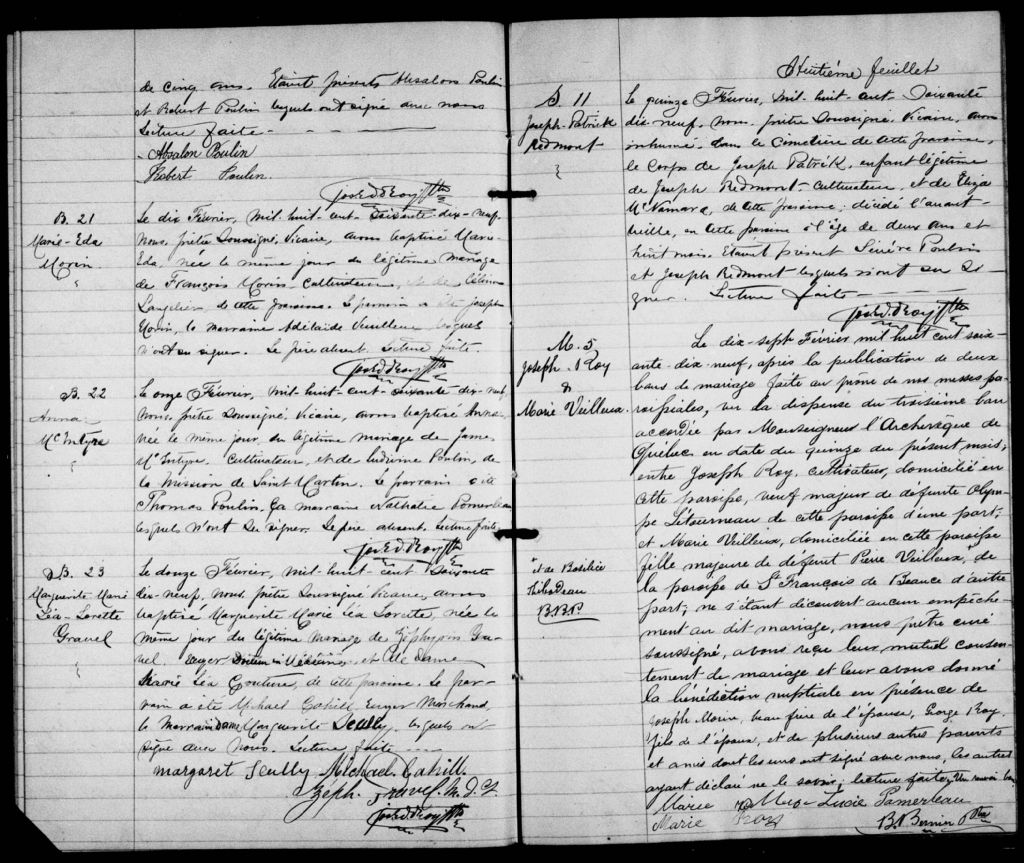 de cinq ans. Etaient présents Absalon Poulin
et Robert Poulin lesquels ont signé avec nous
Lecture faite
Absalon Poulin
Robert Poulin
Jos. Ed. Roy Ptre
B. 21
Marie-Eda
Morin
Le dix Février, mil-huit-cent-soixante-dix-neuf,
Nous, prêtre Soussigné, Vicaire, avons baptisé Marie-
Eda, née le même jour du légitime mariage
de François Morin, cultivateur, et de Célina
Langelier, de cette paroisse. Le parrain a été Joseph
Morin, la marraine Adélaide Veilleux lesquels
n'ont su signer. Le père absent. Lecture faite.
Jos. Ed. Roy Ptre
B. 22
Anna
McIntyre
Le onze Février, mil-huit-cent-soixante-dix-neuf,
Nous, prêtre Soussigné, Vicaire, avons baptisé Anna
née le même jour, du légitime mariage de James
McIntyre, cultivateur, et de Ludivine Poulin, de
la mission de Saint Martin. Le parrain a été
Thomas Poulin. La marraine Nathalie Pomerleau
lesquels n'ont su signer. Le père absent. Lecture faite.
Jos. Ed. Roy Ptre
B. 23
Marguerite Marie
Léa-Lorette
Gravel
Le douze Février, mil-huit-cent soixante
dix-neuf, Nous, prêtre Soussigné Vicaire, avons
baptisé Marguerite Marie Léa Lorette, née le
même jour du légitime mariage de Zéphyrin Gra-
vel, Ecuyer Docteur en Médecine, et de Dame
Marie Léa Couture, de cette paroisse. Le par-
rain a été Michael Cahill, Ecuyer Marchand,
la marraine Dame Marguerite Scully, lesquels ont
signé avec nous. Lecture faite
Margaret Scully Michael Cahill
Zéph. Gravel M.D.
Jos. Ed. Roy Ptre
Huitième feuillet
S. 11
Joseph-Patrick
Redmont
Le quinze Février, mil-huit-cent-soixante
dix-neuf, nous, prêtre Soussigné, Vicaire, avons
inhumé, dans le cimetière de cette paroisse,
le Corps de Joseph Patrick, enfant légitime
de Joseph Redmont cultivateur, et de Eliza
McNamara, de cette paroisse, décédé l'avant-
veille, en cette paroisse à l'âge de deux ans et
huit mois. Etaient présent Sévère Poulin
et Joseph Redmont lesquels n'ont su si-
gner. Lecture faite
Jos. Ed. Roy Ptre
M. 5
Joseph Roy
&
Marie Veilleux
Le dix-sept Février mil huit cent soix-
ante-dix-neuf, après la publication de deux
bans de mariage faite au prône de nos messes pa-
roissiales, vu la dispense du troisième ban
accordée par Monseigneur l'Archevêque de
Québec en date du quinze du présent mois,
entre Joseph Roy, cultivateur, domicilié en
cette paroisse, veuf majeur de défunte Olym-
pe Létourneau de cette paroisse d'une part,
et Marie Veilleux, domiciliée en cette paroisse
fille majeure de défunt Pierre Veilleux, de
+ et de Basilice
Thibodeau
B.B.P.
la paroisse de St François de Beauce d'autre
part; ne s'étant découvert aucun empêche-
ment au dit mariage, nous prêtre curé
soussigné, avons reçu leur mutuel consen-
tement de mariage et leur avons donné
la bénédiction nuptiale en présence de
Joseph Morin, beau frère de l'épouse, George Roy,
fils de l'époux, et de plusieurs autres parents
et amis dont les uns ont signé avec nous, les autres
ayant déclaré ne le savoir; lecture faite. Un renvoi bon
Marie Lucie Pomerleau
Marie Roy
B. Bernier Ptre